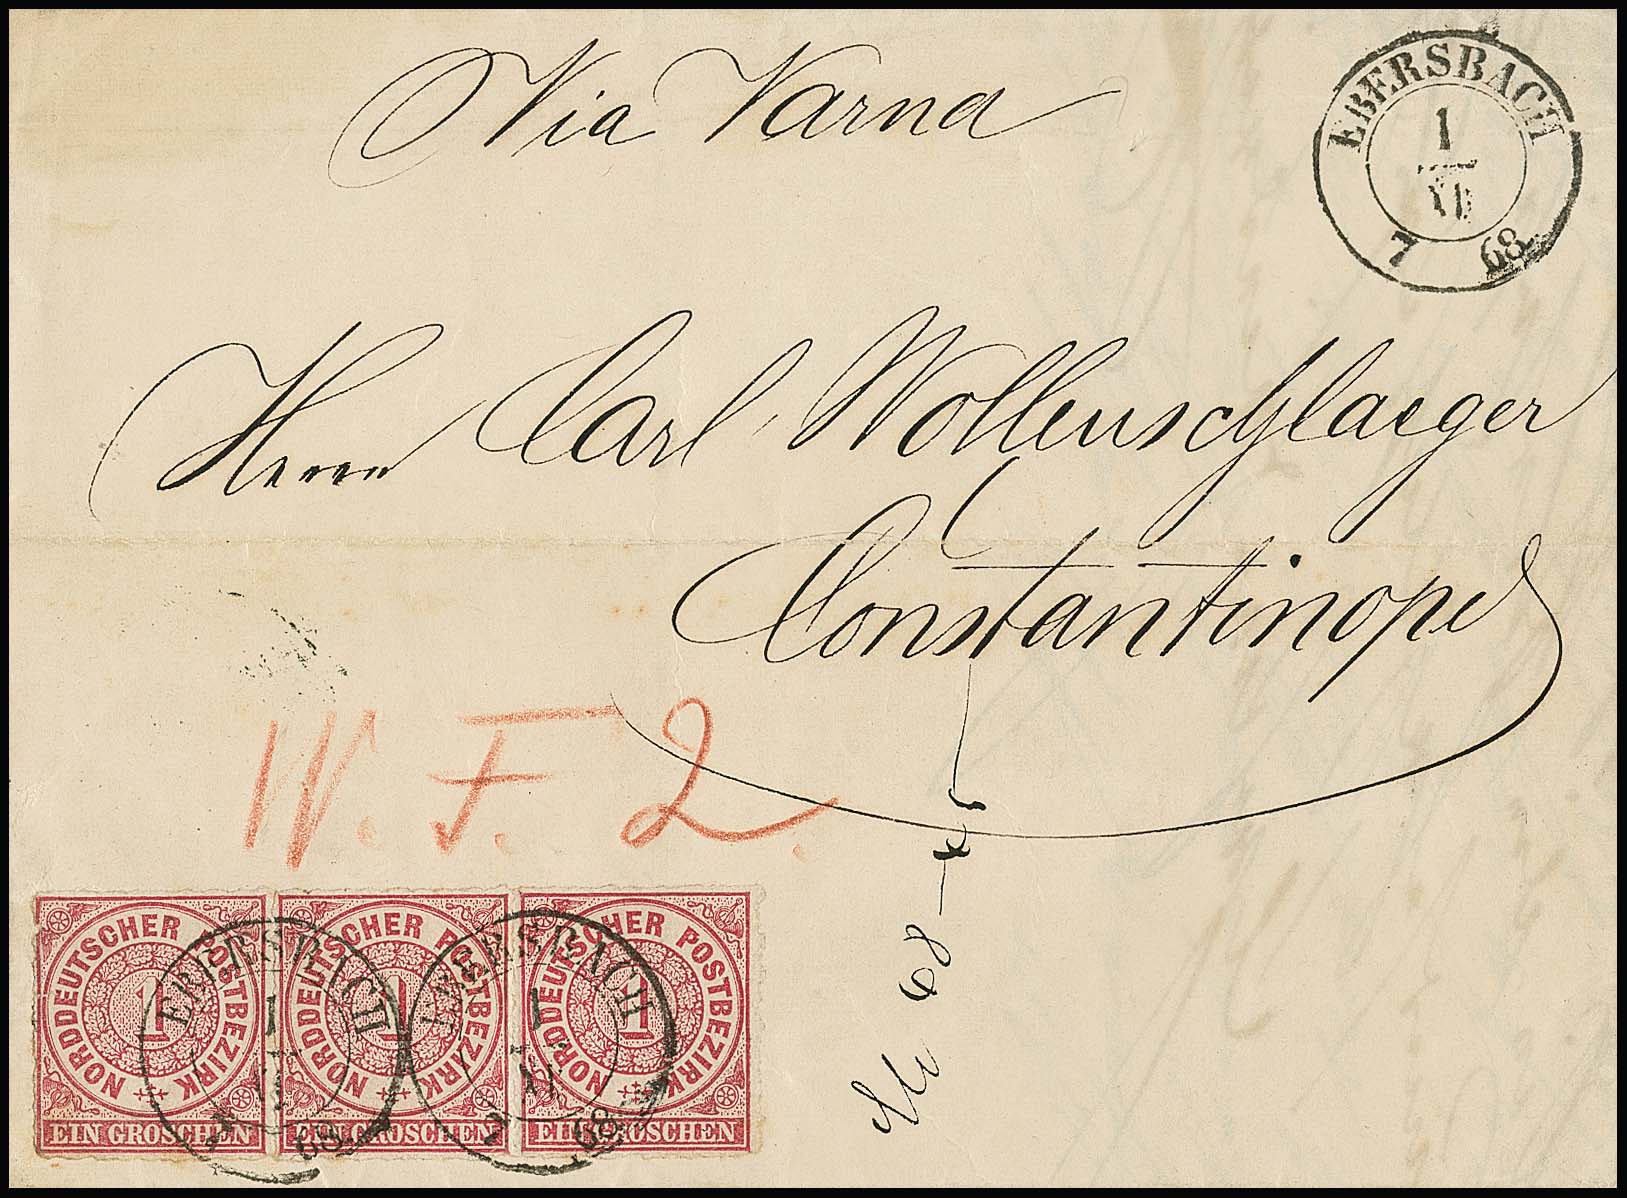 Via Varna
EBERSBACH
1
VI
7 68
Herrn Carl Wollenschlaeger
Constantinopel
W. F. 2.
68
NORDDEUTSCHER POSTBEZIRK
1
EIN GROSCHEN
NORDDEUTSCHER POSTBEZIRK
1
EIN GROSCHEN
NORDDEUTSCHER POSTBEZIRK
1
EIN GROSCHEN
EBERSBACH
1
VI
7 68
EBERSBACH
1
VI
7 68